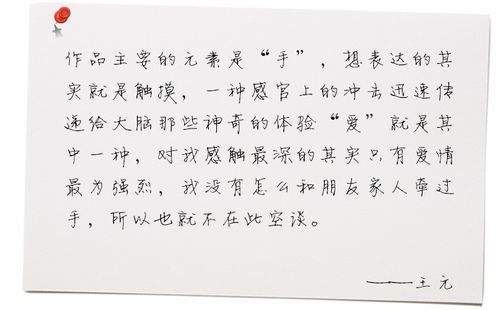 作品主要的元素是“手”，想表达的其
实就是触摸，一种感官上的冲击迅速传
递给大脑那些神奇的体验“爱”就是其
中一种，对我感触最深的其实只有爱情
最为强烈，我没有怎么和朋友家人牵过
手，所以也就不在此空谈。
——王元